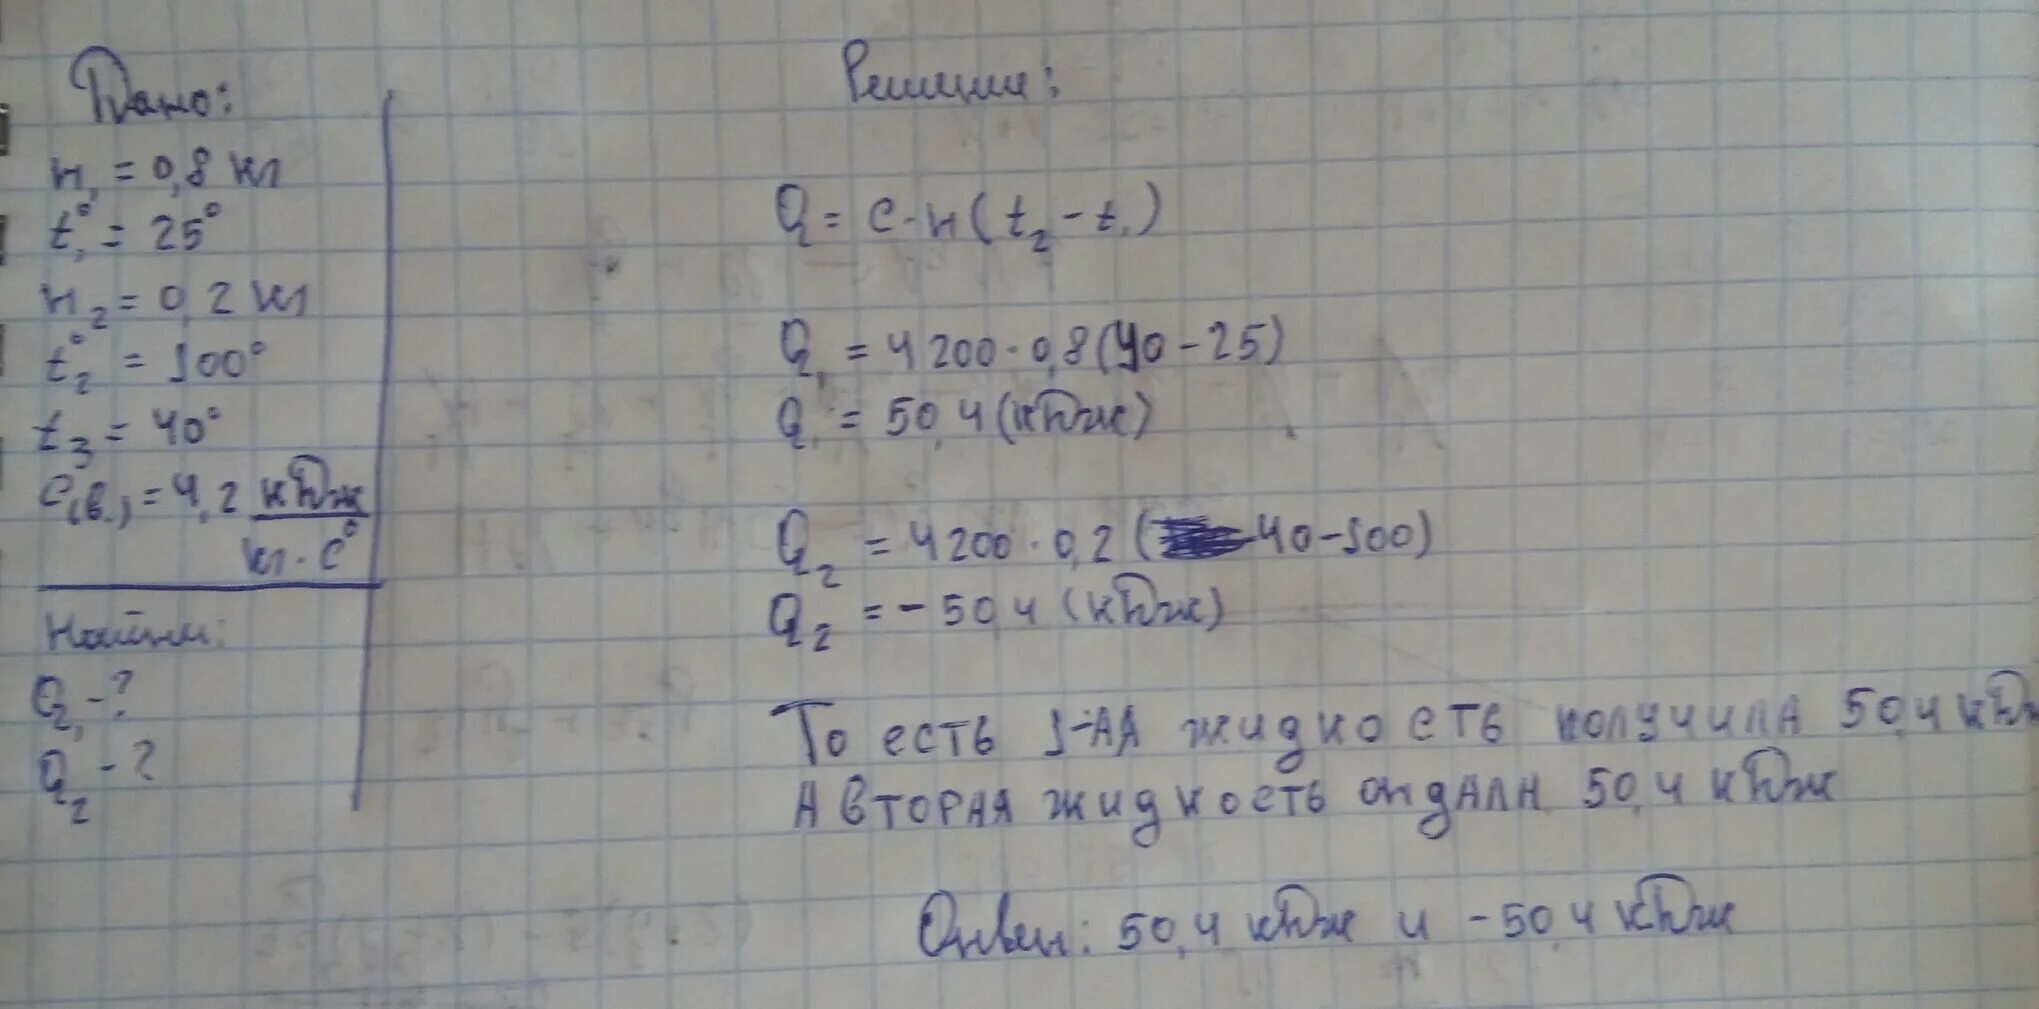 Дано:
m₁ = 0,8 кг
t₁° = 25°
m₂ = 0,2 кг
t₂° = 100°
t₃ = 40°
c(в.) = 4,2 кДж
кг · c°
Найти:
Q₁ - ?
Q₂ - ?
Решение:
Q = c · m (t₂ - t₁)
Q₁ = 4200 · 0,8 (40 - 25)
Q₁ = 50,4 (кДж)
Q₂ = 4200 · 0,2 (40 - 100)
Q₂ = - 50,4 (кДж)
То есть 1-АЯ жидкость получила 50,4 кДж
А вторая жидкость отдала 50,4 кДж
Ответ: 50,4 кДж и - 50,4 кДж